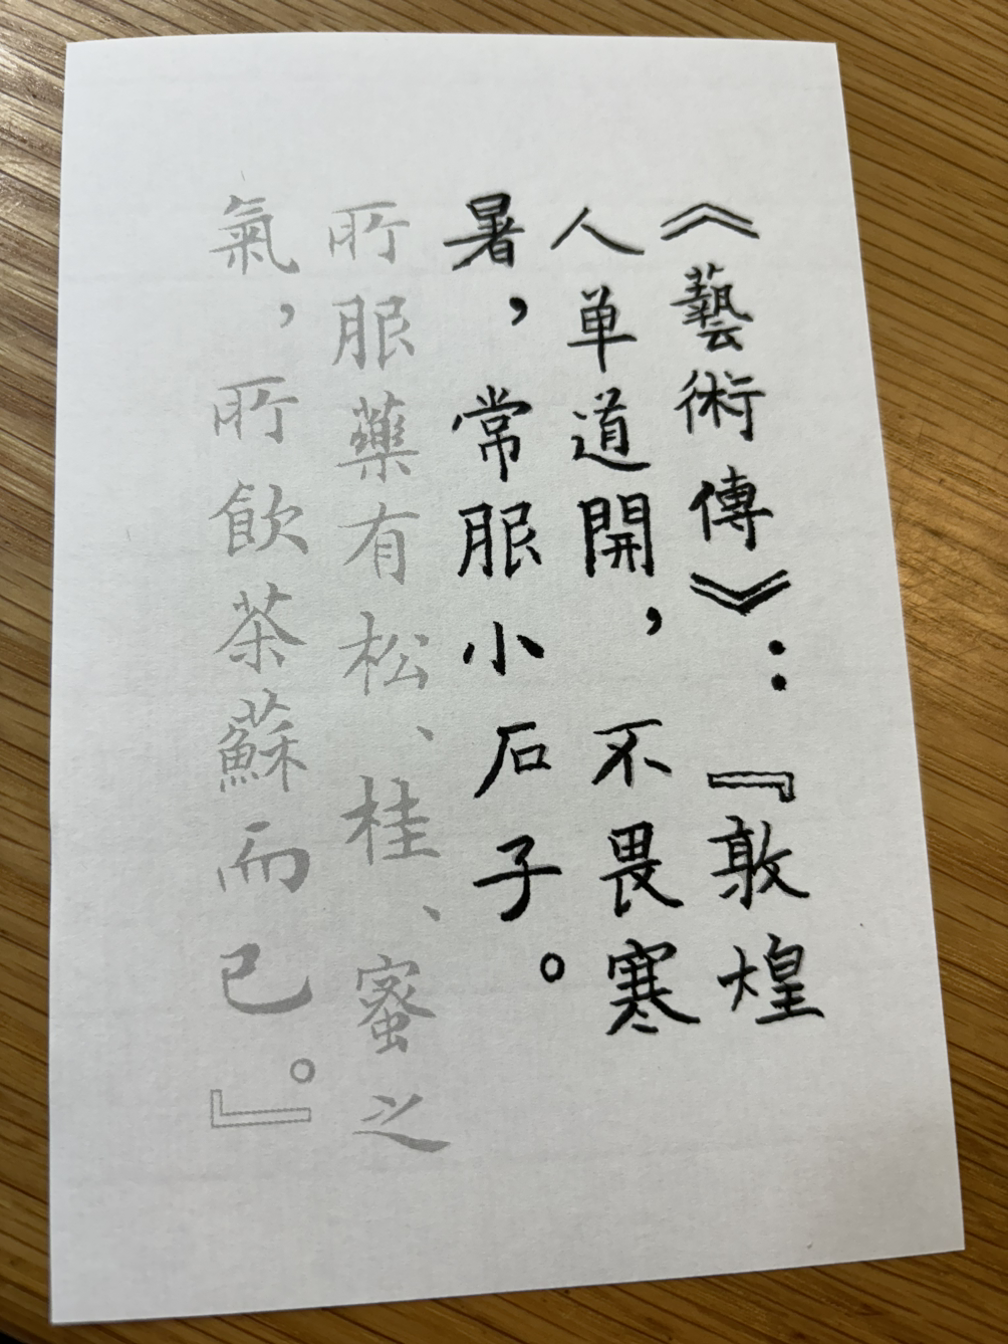 《藝術傳》：『敦煌
人单道開，不畏寒
暑，常服小石子。
所服藥有松、桂、蜜之
氣，所飲茶蘇而已。』